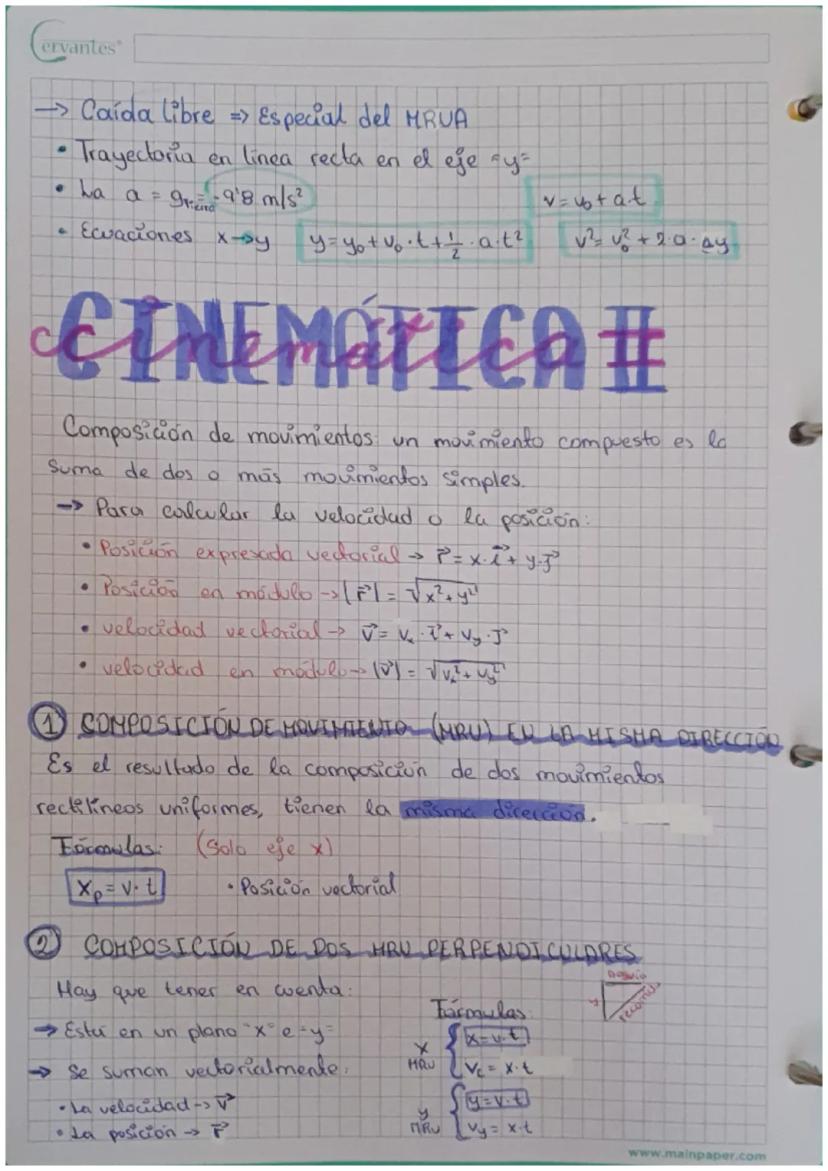 Cervantes
→ Caída libre ⇒ Especial del MRUA
• Trayectoria en línea recta en el eje "y"
• La a = g = -9'8 m/s²
v = v₀ + a·t
• Ecuaciones x→y y = y₀ + v₀·t + 1/2·a·t² v² = v₀² + 2·a·Δy
CINEMÁTICA II
cinemática II
Composición de movimientos: un movimiento compuesto es la
suma de dos o más movimientos simples.
→ Para calcular la velocidad o la posición:
• Posición expresada vectorial → r⃗ = x·i⃗ + y·j⃗
• Posición en módulo → |r⃗| = √x²+y²
• velocidad vectorial → v⃗ = vₓ·i⃗ + vy·j⃗
• velocidad en módulo → |v⃗| = √vₓ²+vy²
① COMPOSICIÓN DE MOVIMIENTO (MRU) EN LA MISMA DIRECCIÓN
Es el resultado de la composición de dos movimientos
rectilíneos uniformes, tienen la misma dirección.
Fórmulas: (Solo eje x)
Xp = v·t • Posición vectorial
② COMPOSICIÓN DE DOS MRU PERPENDICULARES
Hay que tener en cuenta:
→ Está en un plano "x" e "y"
→ Se suman vectorialmente:
• La velocidad → v⃗
• La posición → r⃗
y
Fórmulas:
X MRU
x = v·t
= x·t
y MRU
y = v·t
Vy = x·t
www.mainpaper.com